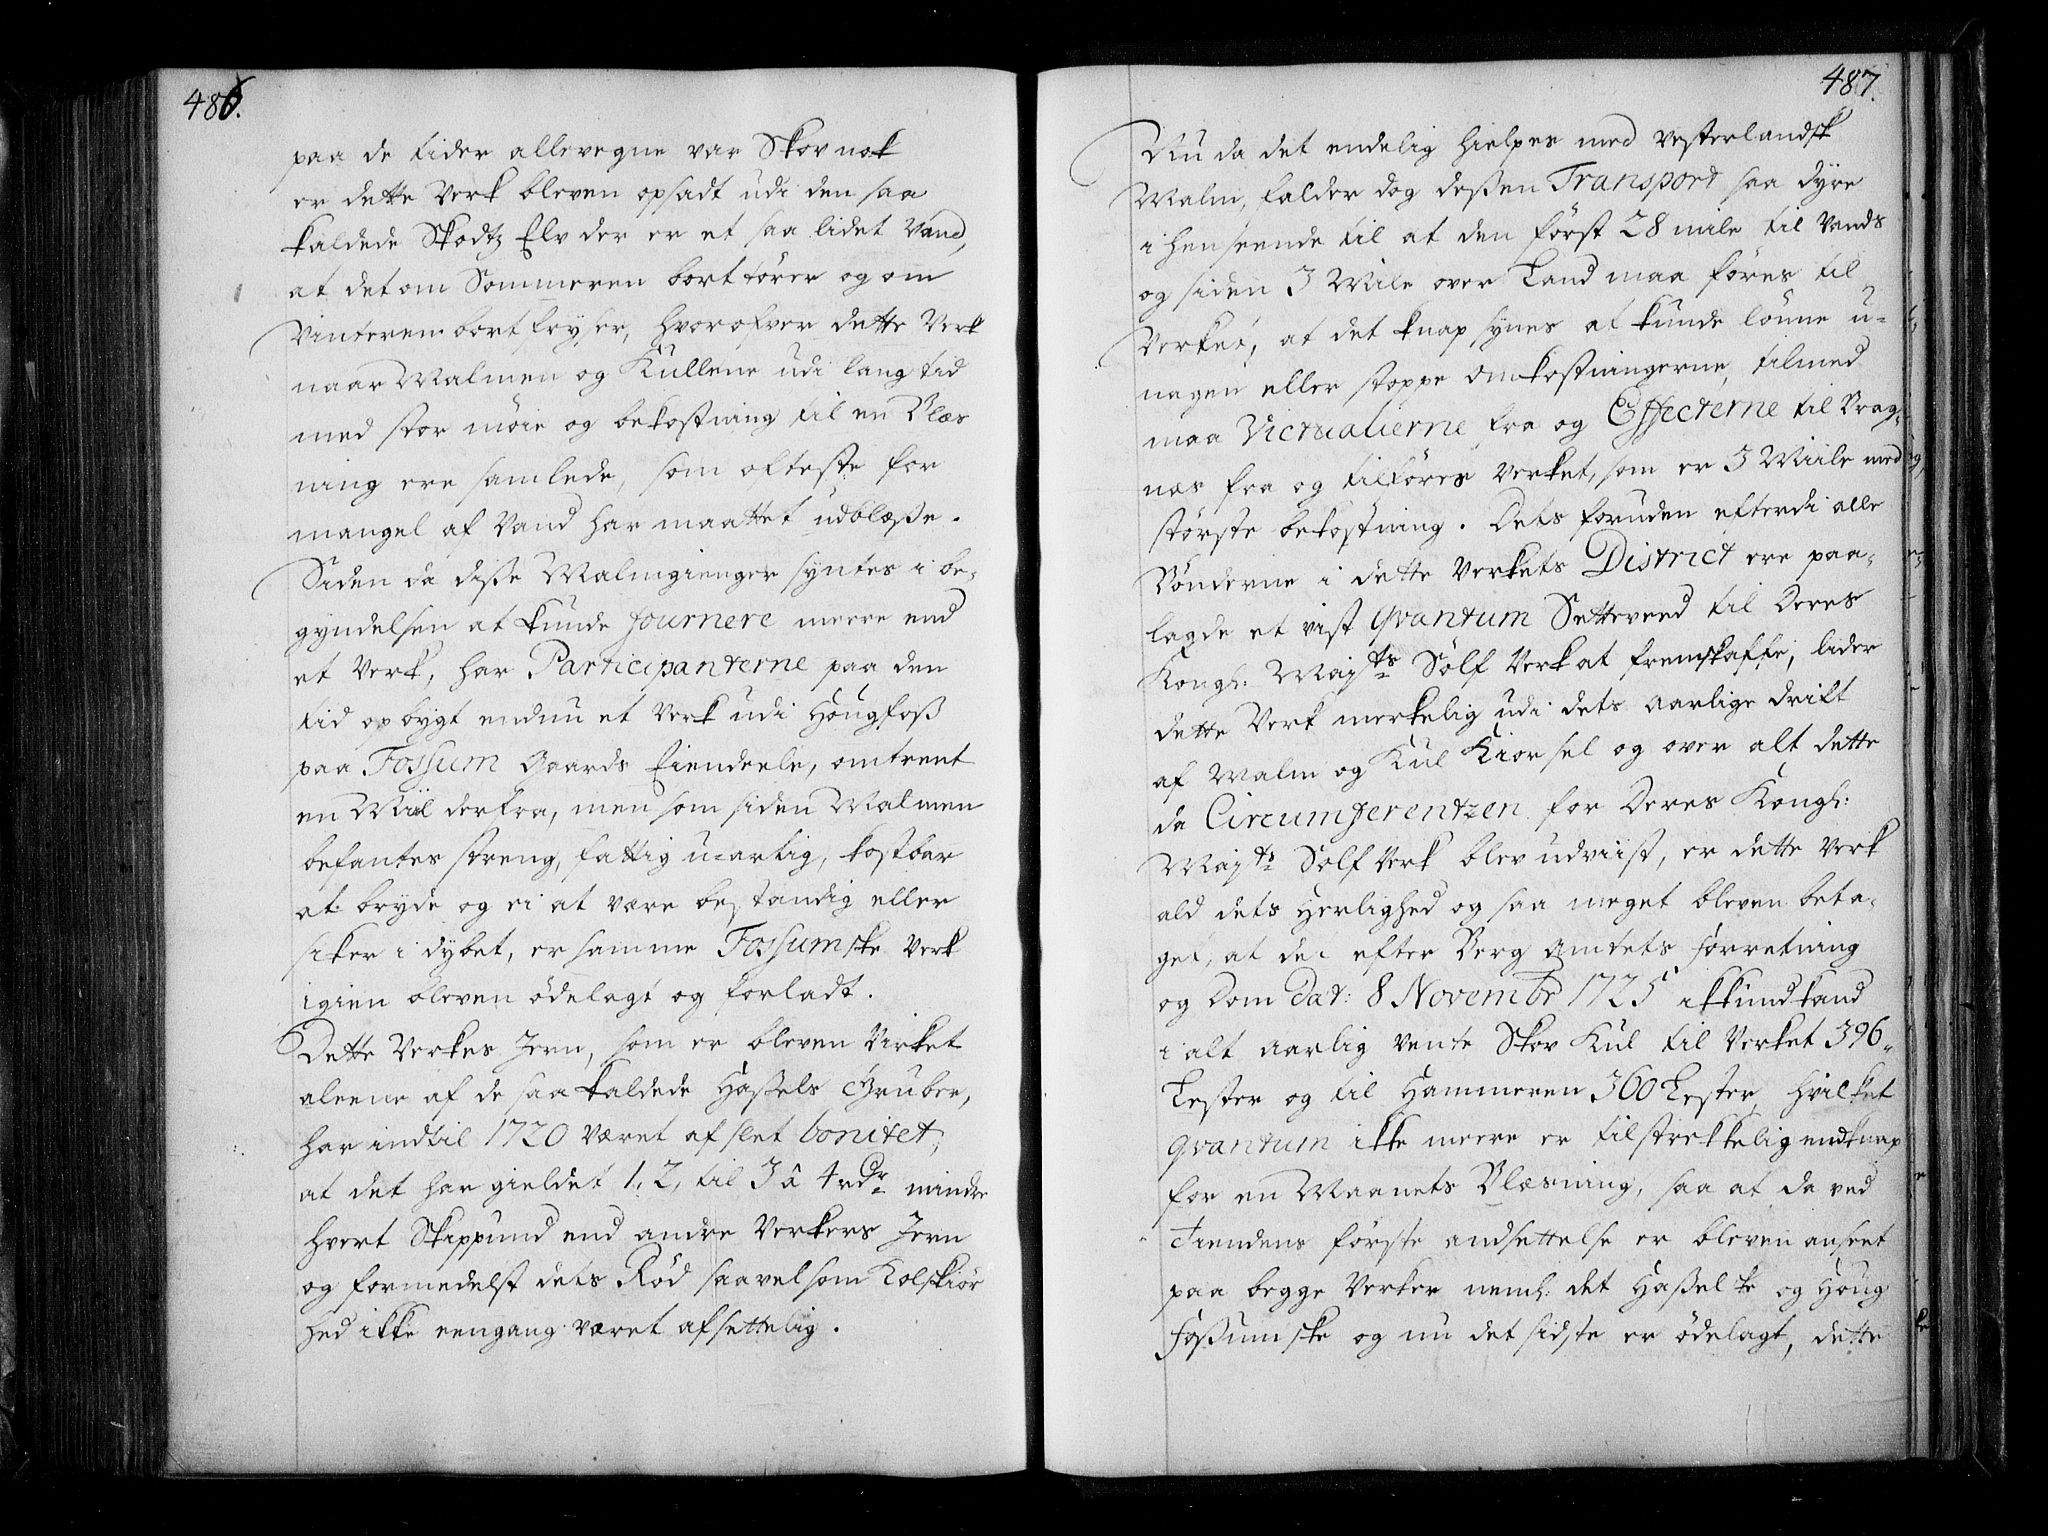 486.
paa de tider allevegne var Skov nok
er dette Verk bleven opsadt udi den saa
kaldede Skodtz Elv der er et saa lidet Vand,
at det om Sommeren bort tørrer og om
Vinteren bort fryser, hvorofver dette Verk
naar Malmen og Kullene udi lang tid
med stor møie og bekostning til en Blæs
ning ere samlede, som ofteste for
mangel af Vand har maattet udblæsse.
Siden da disse Malmgienger syntes i be,
gyndelsen at kunde fournere meere end
et Verk, har Participanterne paa den
tid opbygt endnu et Verk udi Hougfoss
paa Fossum Gaards Eiendeele, omtrent
en Miil derfra, men som siden Malmen
befantes streng, fattig uartig, kostbar
at bryde og ei at være bestandig eller
sikker i dybet, er samme Fossumske Verk
igien bleven ødelagt og forladt.
Dette Verkes Jern, som er bleven Virket
aleene af de saa kaldede Hassels Gruber,
har indtil 1720 været af slet bonitet,
at det har gieldet 1, 2, til 3 â 4 rdr mindre
hvert Skippund end andre Verkers Jern
og formedelst dets Rød saavel som Kolskiør
hed ikke eengang været afsettelig.
487.
Nu da det endelig hielpes med Vesterlandsk
Malm, falder dog dessen Transport saa dyre
i henseende til at den først 28 mile til Vands
og siden 3 Mile over Land maa føres til
Verket, at det knap synes at kunde lønne u-
nagen eller stoppe omkostningerne, tilmed
maa Victualierne fra og Effecterne til Brag-
næs fra og tilføres Verket, som er 3 Miile med
største bekostning. Dets foruden efterdi alle
Bønderne i dette Verkets District ere paa-
lagde et vist Qvantum Setteveed til Deres
Kongl: Mayts Sølf Verk at fremskaffe, lider
dette Verk merkelig udi dets aarlige drift
af Malm og Kul Kiørsel og over alt dette
da Circumferentzen for Deres Kongl:
Mayts Sølf Verk blev udviist, er dette Verk
ald dets Herlighed og saa meget bleven beta-
get, at det efter Berg Amtets forretning
og Dom dat: 8 Novembr 1725 ikkund kand
i alt aarlig vente Skov Kul til Verket 396
Lester og til Hammeren 360 Lester, hvilket
qvantum ikke meere er tilstrekkelig end knap
for en Maanets Blæsning, saa at da ved
Tiendens første andsettelse er bleven anseet
paa begge Verker neml: det Hasselske og Houg
Fossumske og nu det sidste er ødelagt, dette